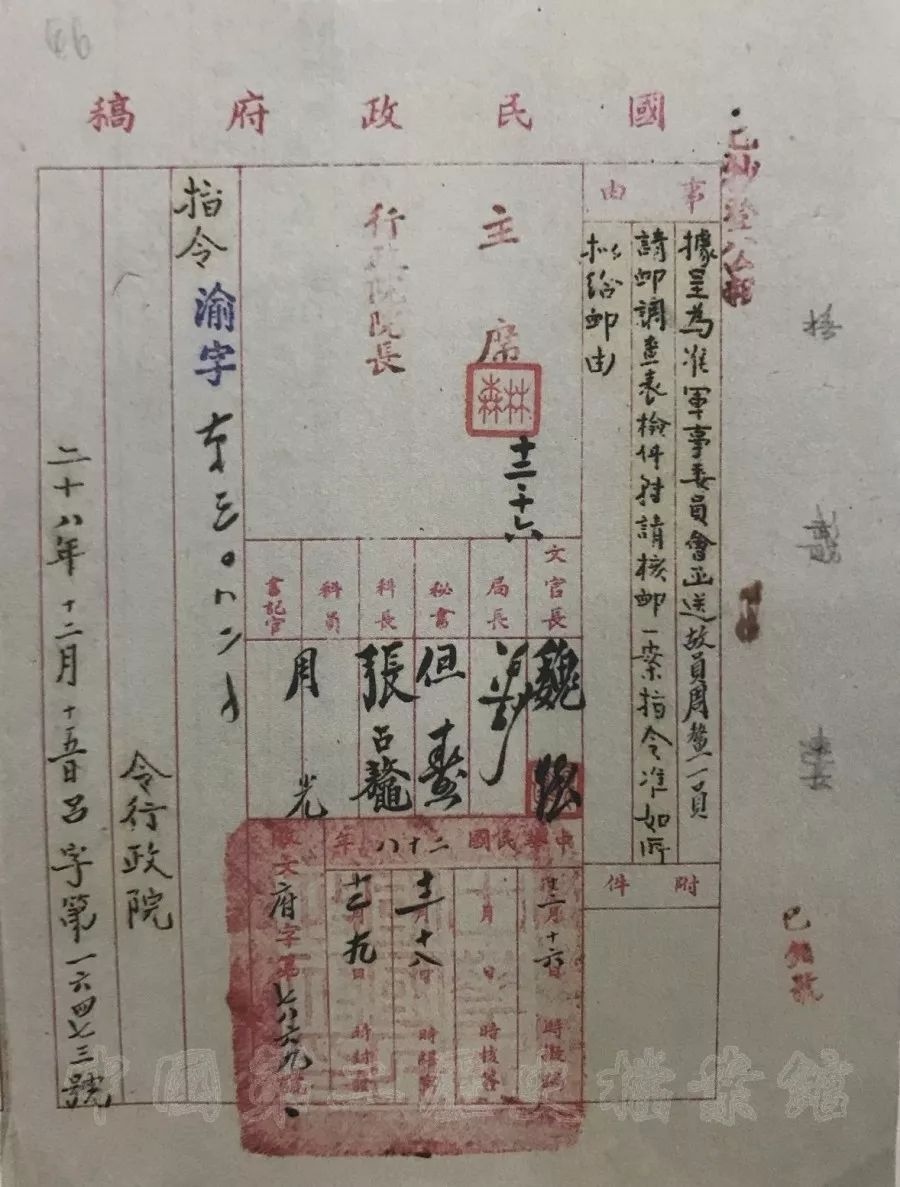 66
國民政府稿
事由
據呈為准軍事委員會函送故員周鰲一員
請卹調查表檢件轉請核卹一案指令准如所
擬給卹由
附件
主席
林森
十二、十六
行政院院長
文官長
魏
局長
秘書
但燾
科長
張
科員
書記官
周光
中華民國二十八年
十二月十六日
時擬稿
月日
時核簽
十二月十八日
時繕寫
十二月十九日
時封發
府字第
指令
渝字
令行政院
二十八年十二月十五日呂字第一六四七三號
已抄登公報
已編號
中國第二歷史檔案館